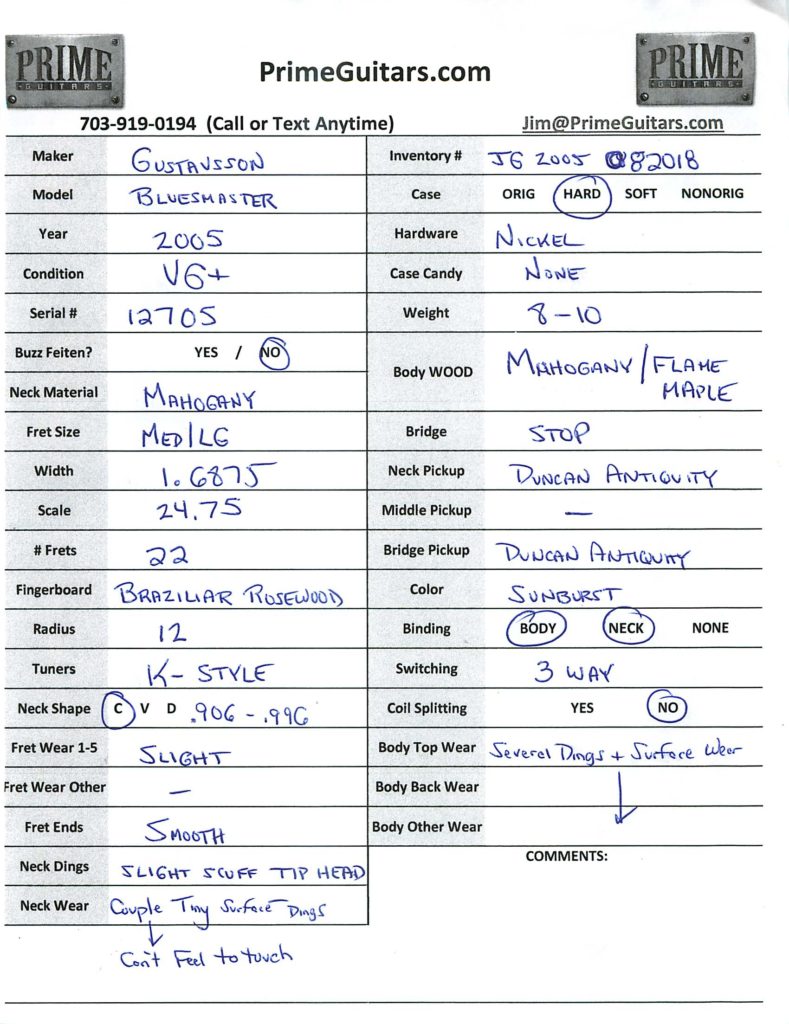 PRIME
GUITARS
PrimeGuitars.com
PRIME
GUITARS
703-919-0194 (Call or Text Anytime)
Jim@PrimeGuitars.com
Maker GUSTAVSSON
Model BLUESMASTER
Year 2005
Condition VG+
Serial # 12705
Buzz Feiten? YES / NO
Neck Material MAHOGANY
Fret Size MED/LG
Width 1.6875
Scale 24.75
# Frets 22
Fingerboard BRAZILIAR ROSEWOOD
Radius 12
Tuners K-STYLE
Neck Shape C V D .906 - .996
Fret Wear 1-5 SLIGHT
Fret Wear Other —
Fret Ends SMOOTH
Neck Dings SLIGHT SCUFF TIP HEAD
Neck Wear Couple Tiny Surface Dings
Can't Feel to touch
Inventory # JG 2005 082018
Case ORIG HARD SOFT NONORIG
Hardware NICKEL
Case Candy NONE
Weight 8-10
Body WOOD MAHOGANY/FLAME
MAPLE
Bridge STOP
Neck Pickup DUNCAN ANTIQUITY
Middle Pickup —
Bridge Pickup DUNCAN ANTIQUITY
Color SUNBURST
Binding BODY NECK NONE
Switching 3 WAY
Coil Splitting YES NO
Body Top Wear Several Dings + Surface Wear
Body Back Wear
Body Other Wear
COMMENTS: